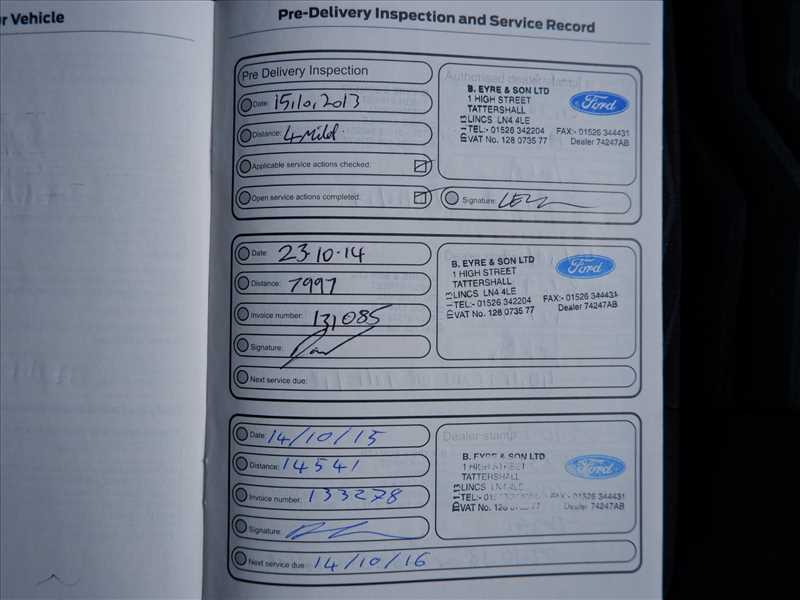 r Vehicle
Pre-Delivery Inspection and Service Record
Pre Delivery Inspection
Date: 15,10,2013
Distance: 4
Applicable service actions checked:
Open service actions completed:
Authorised dealer stamp
B. EYRE & SON LTD
1 HIGH STREET
TATTERSHALL
LINCS LN4 4LE
TEL:- 01526 342204 FAX:- 01526 344431
VAT No. 128 0735 77 Dealer 74247AB
Ford
Signature:
Date: 23·10·14
Distance: 7997
Invoice number: 131085
Signature:
Next service due:
B. EYRE & SON LTD
1 HIGH STREET
TATTERSHALL
LINCS LN4 4LE
TEL:- 01526 342204 FAX:- 01526 344431
VAT No. 128 0735 77 Dealer 74247AB
Ford
Date: 14/10/15
Distance: 14541
Invoice number: 133278
Signature:
Next service due: 14/10/16
Dealer stamp
B. EYRE & SON LTD
1 HIGH STREET
TATTERSHALL
LINCS LN4 4LE
TEL:- FAX:- 01526 344431
VAT No. 77 Dealer 74247AB
Ford